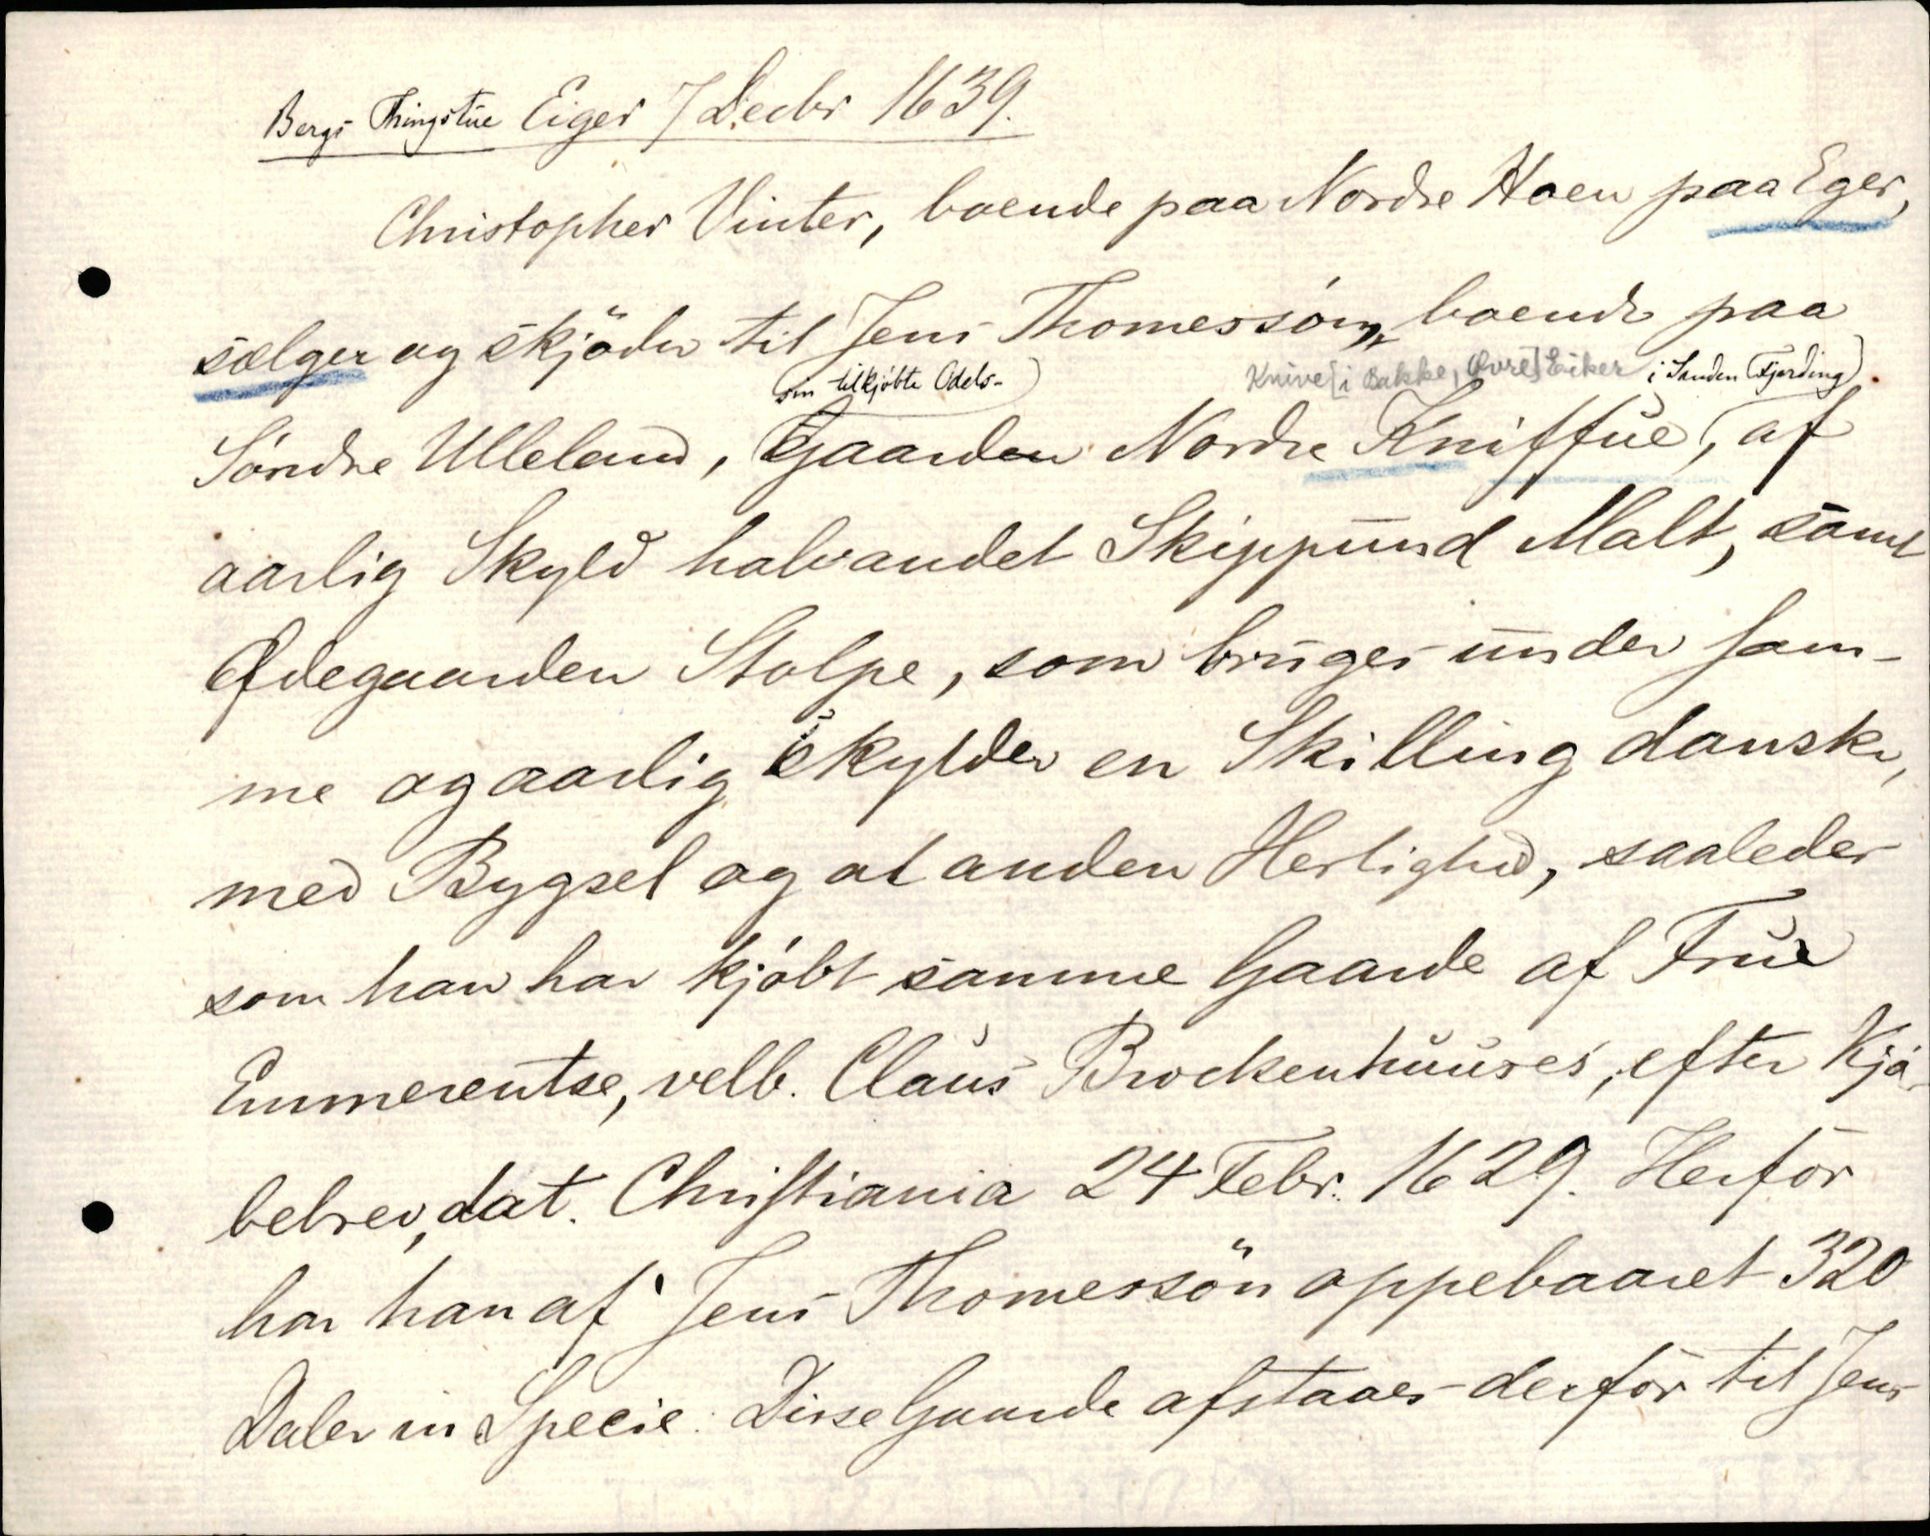 Bergs Thingstue Eiger 7 Decbr 1639.
Christopher Vinter, boende paa Nordre Hoen paa Eger,
sælger og skjöder til Jens Thomessön, boende paa
sin tilkjöbte Odels-
Knive [i Bakke, Øvre] Eiker i Sanden Fjerding)
Söndre Ulleland, Gaarden Nordre Kniffue, af
aarlig Skyld halvandet Skippund Malt, samt
Ødegaarden Stolpe, som bruges under sam-
me og aarlig skylder en Skilling danske,
med Bygsel og al anden Herlighed, saaledes
som han har kjöbt samme Gaarde af Frue
Emmerentse, velb. Claus Brockenhuuses, efter Kjö-
bebrev, dat. Christiania 24 Febr. 1629. Herfor
har han af Jens Thomessön oppebaaret 320
Daler in Specie. Disse Gaarde afstaaes derfor til Jens